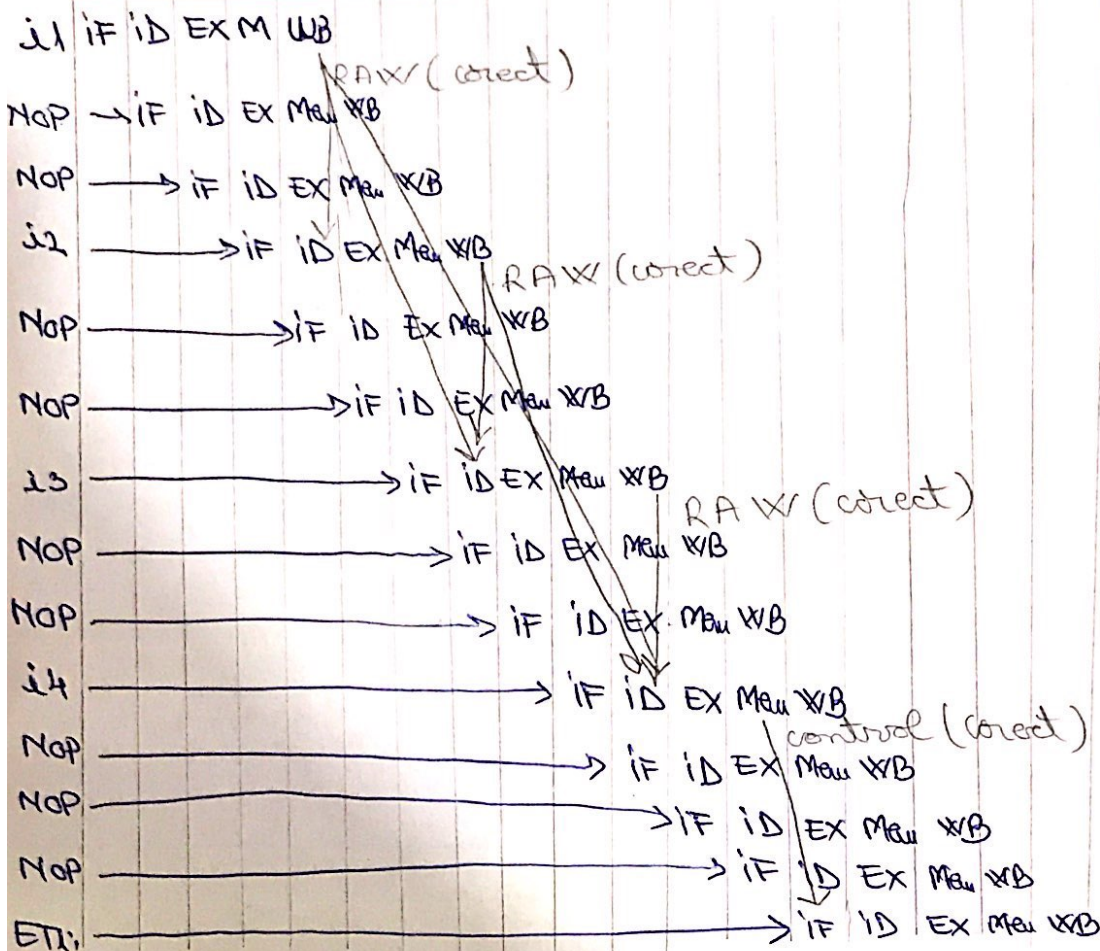 i1 iF iD EX M WB
RAW (corect)
NOP iF iD EX Mem WB
NOP iF iD EX Mem WB
i2 iF iD EX Mem WB
RAW (corect)
NOP iF iD EX Mem WB
NOP iF iD EX Mem WB
i3 iF iD EX Mem WB
RAW (corect)
NOP iF iD EX Mem WB
NOP iF iD EX Mem WB
i4 iF iD EX Mem WB
control (corect)
NOP iF iD EX Mem WB
NOP iF iD EX Mem WB
NOP iF iD EX Mem WB
iF iD EX Mem WB